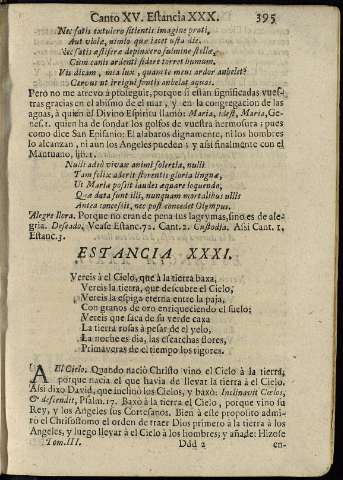 Canto XV. Estancia XXX. 395
Nec satis extulero sitientis imagine prati,
Aut violæ, nimio quæ iacet usta die.
Nec satis æstiferæ depinxero fulmine stellæ,
Cùm canis ardenti sidere torret humum.
Vis dicam, mea lux, quam te meus ardor anhelet?
Cervus ut irrigui fontis anhelat aquas.
Pero no me atrevo à proseguir, porque si están significadas vues-
tras gracias en el abismo de el mar, y en la congregacion de las
aguas, à quien el Divino Espiritu llamò: Maria, idest, Maria, Ge-
nes. 1. quien ha de sondar los golfos de vuestra hermosura? pues
como dice San Epifanio: El alabaros dignamente, ni los hombres
lo alcanzan, ni aun los Angeles pueden; y asi finalmente con el
Mantuano, lib. 1.
Nulli adeò vivax animi solertia, nulli
Tam felix aderit florentis gloria linguæ,
Ut Maria possit laudes æquare loquendo,
Quæ data sunt illi, nunquam mortalibus ullis
Antea concessit, nec post concedet Olympus.
Alegre llora. Porque no eran de pena sus lagrymas, sino es de ale-
gria. Deseado, Vease Estanc. 72. Cant. 2. Custodia. Asi Cant. 1,
Estanc. 3.
ESTANCIA XXXI.
Vereis à el Cielo, que à la tierra baxa,
Vereis la tierra, que descubre el Cielo,
Vereis la espiga eterna entre la paja,
Con granos de oro enriqueciendo el suelo;
Vereis que saca de su verde caxa
La tierra rosas à pesar de el yelo,
La noche es dia, las escarchas flores,
Primaveras de el tiempo los rigores.
A El Cielo. Quando naciò Christo vino el Cielo à la tierra,
porque nacia el que havia de llevar la tierra à el Cielo.
Asi dixo David, que inclinò los Cielos, y baxò: Inclinavit Cœlos,
& descendit, Psalm. 17. Baxò la tierra con el Cielo, porque viò su
Rey, y los Angeles sus Cortesanos. Bien à este proposito admi-
ro el Chrisostomo el orden de traer Dios primero à la tierra à los
Angeles, y luego llevar à el Cielo à los hombres; y añade: Hizose
Tom. III. Ddd 2 en-